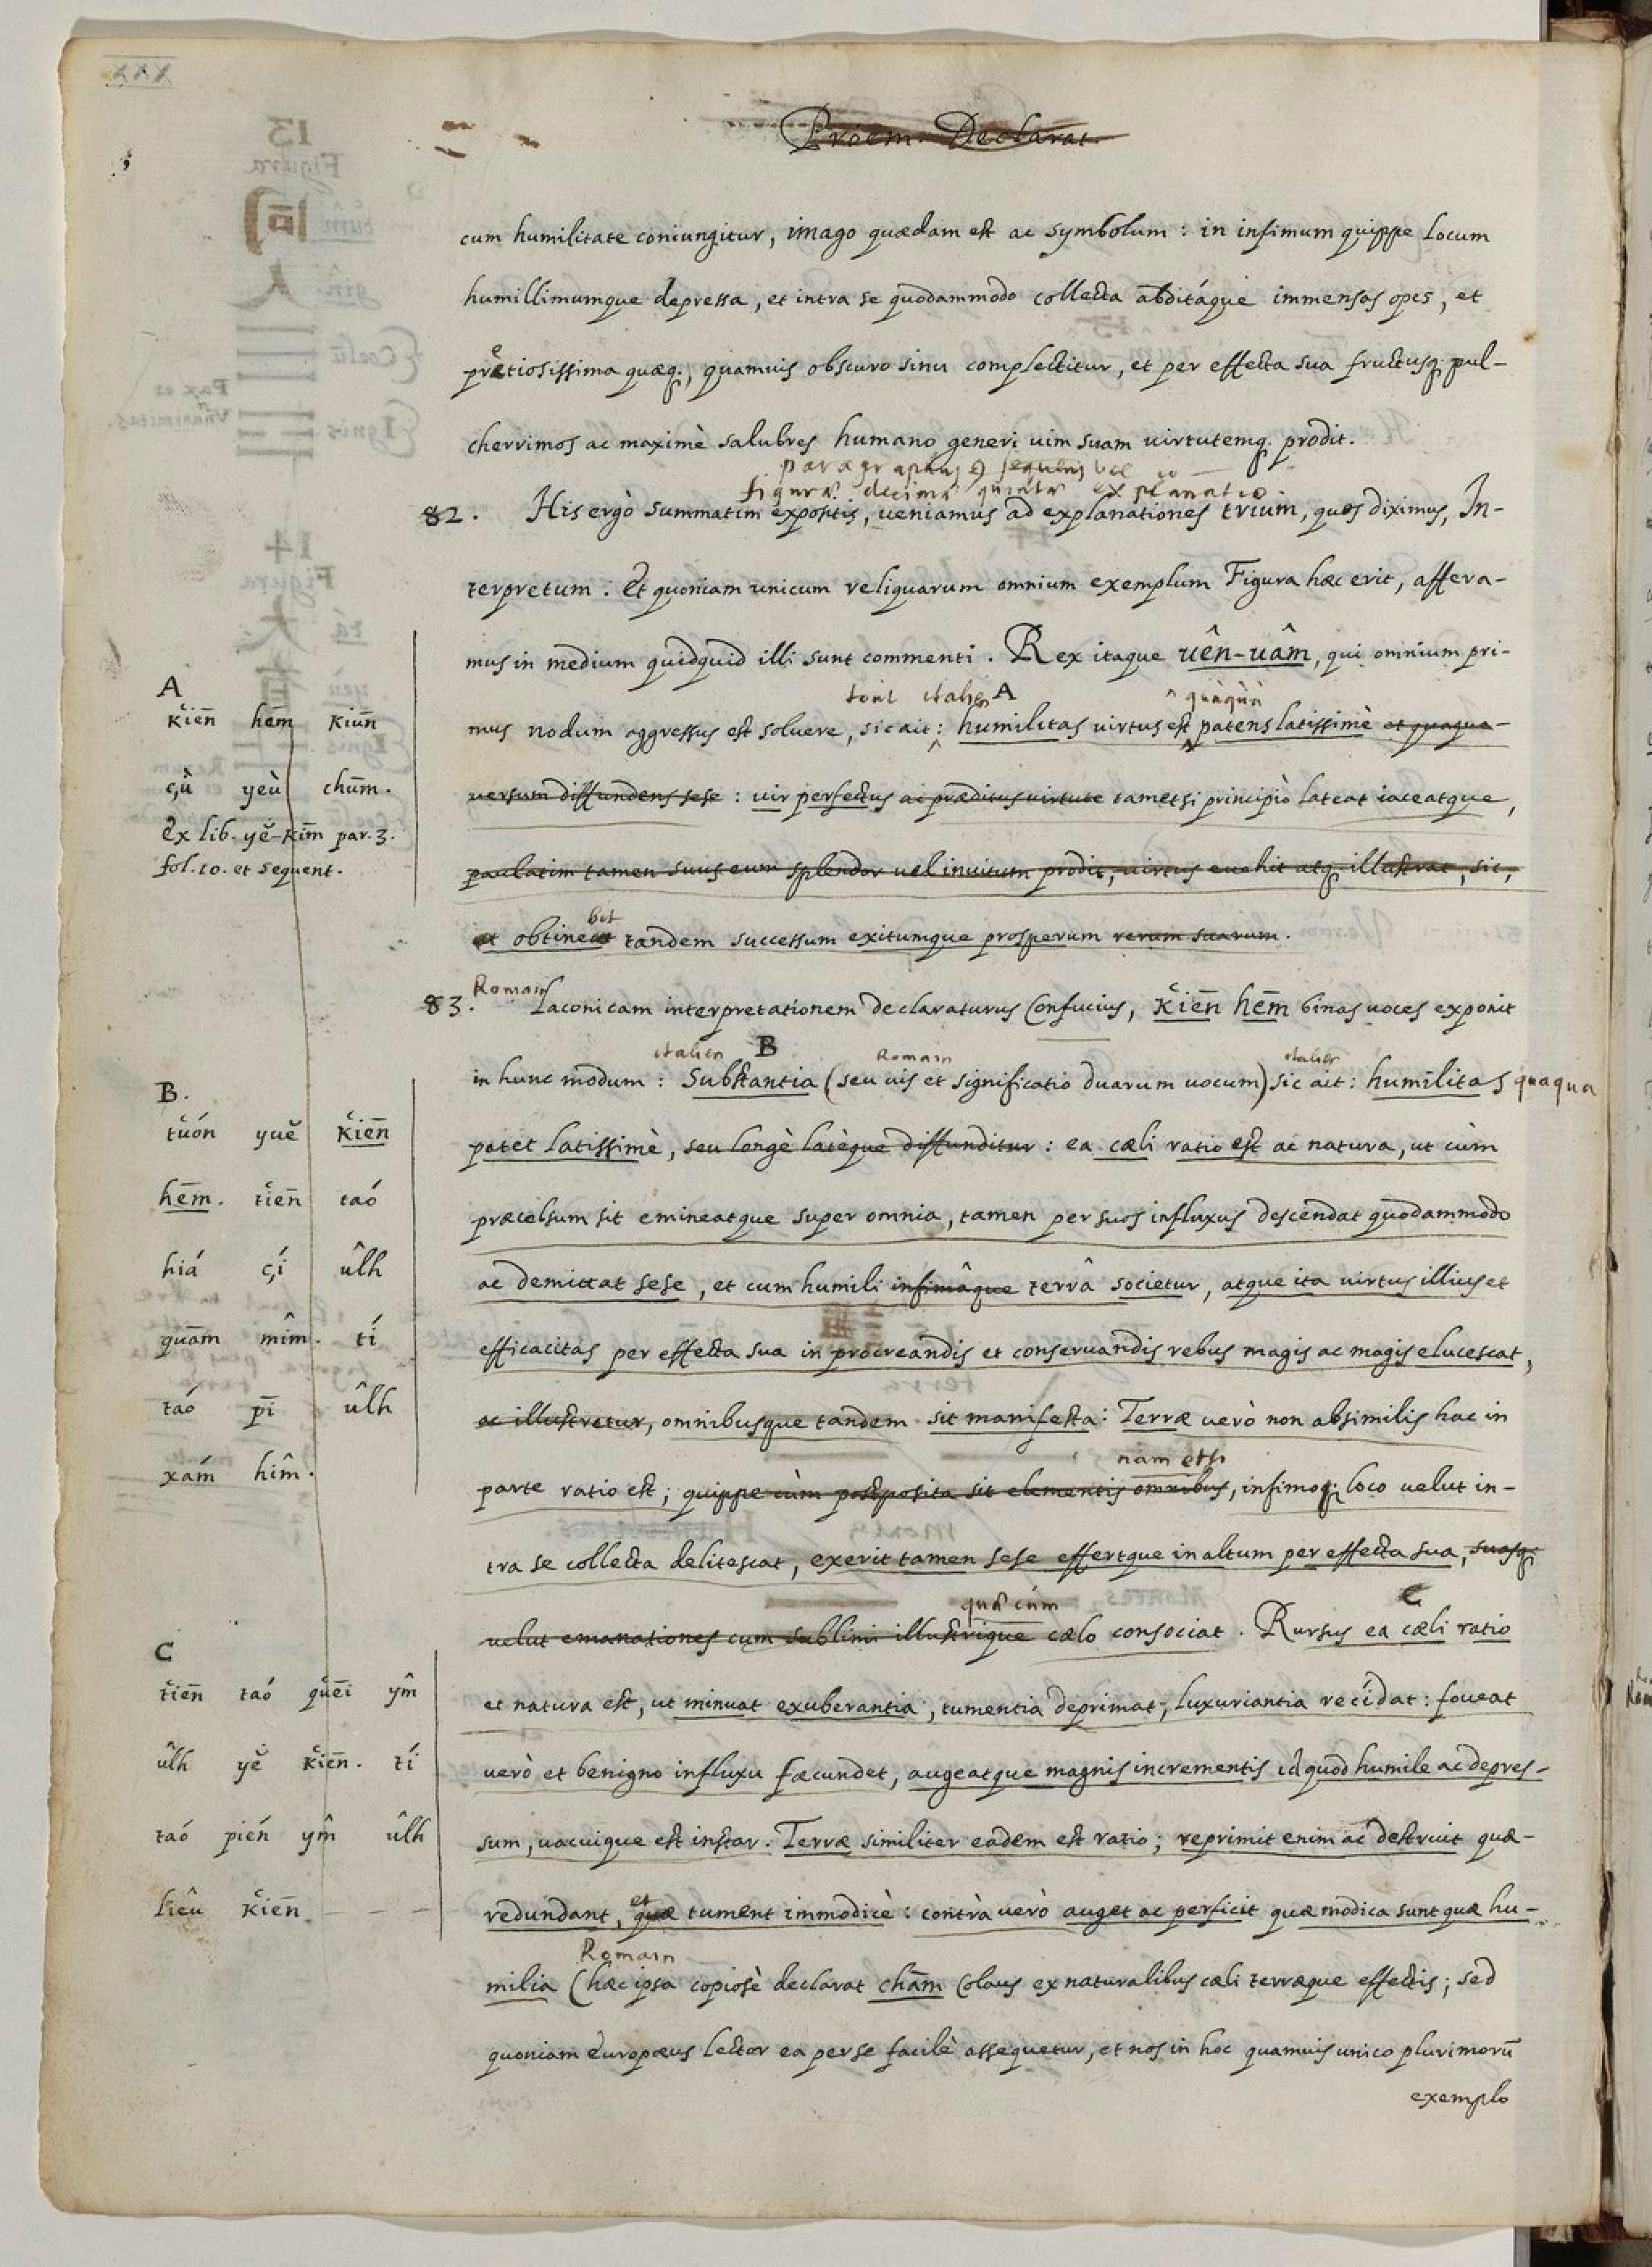 Proëm. Declarat.
cum humilitate coniungitur, imago quædam est ac symbolum : in infimum quippe locum
humillimumque depressa, et intra se quodammodo collecta abditáque immensas opes, et
prætiosissima quæq;, quamuis obscuro sinu complectitur, et per effecta sua fructusq; pul-
cherrimos ac maximè salubres humano generi uim suam uirtutemq; prodit.
figuræ decimæ quintæ explanatio.
82. His ergò summatim expositis, ueniamus ad explanationes trium, quos diximus, In-
terpretum : Et quoniam unicum reliquarum omnium exemplum Figura hæc erit, affera-
mus in medium quidquid illi sunt commenti. Rex itaque uên-uâm, qui omnium pri-
tout italien A quàquà
mus nodum aggressus est soluere, sic ait : humilitas uirtus est patens latissimè et quaqua-
uersum diffundens sese : uir perfectus ac præditus uirtute tametsi principiò lateat iaceatque,
paulatim tamen suus eum splendor uel inuitum prodit, uirtus euehit atq; illustrat, sic,
bit
et obtineat tandem successum exitumque prosperum rerum suarum.
A
kiēn hēm kiūn
çù yeù chūm.
Ex lib. yĕ-kīm par. 3.
fol. 10. et sequent.
Romain
83. Laconicam interpretationem declaraturus Confucius, kiēn hēm binas uoces exponit
italien B Romain italien
in hunc modum : Substantia (seu uis et significatio duarum uocum) sic ait : humilitas quaqua
patet latissimè, seu longè latèque diffunditur : ea cæli ratio est ac natura, ut cùm
præcelsum sit emineatque super omnia, tamen per suos influxus descendat quodammodo
ac demittat sese, et cum humili infimâque terrâ societur, atque ita uirtus illius et
efficacitas per effecta sua in procreandis et conseruandis rebus magis ac magis elucescat,
ac illustretur, omnibusque tandem sit manifesta : Terræ uerò non absimilis hac in
nam etsi
parte ratio est ; quippe cùm postposita sit elementis omnibus, infimoq; loco uelut in-
tra se collecta delitescat, exerit tamen sese effertque in altum per effecta sua, suasq;
quæ cùm C
uelut emanationes cum sublimi illustrique cælo consociat. Rursus ea cæli ratio
et natura est, ut minuat exuberantia, tumentia deprimat, luxuriantia recídat : foueat
uerò et benigno influxu fæcundet, augeatque magnis incrementis id quod humile ac depres-
sum, uacuique est instar. Terræ similiter eadem est ratio ; reprimit enim ac destruit quæ-
et
redundant, quæ tument immodicè : contrà uerò auget ac perficit quæ modica sunt quæ hu-
Romain
milia (hæc ipsa copiosè declarat chām Colaus ex naturalibus cæli terræque effectis ; sed
quoniam Europæus lector ea per se facilè assequetur, et nos in hoc quamuis unico plurimorū
exemplo
B.
tuón yuĕ kiēn
hēm. tiēn taó
hiá çí ûlh
quām mîm. tí
taó pī ûlh
xám hîm.
C
tiēn taó quēi ŷm
ûlh yĕ kiēn. tí
taó pién ŷm ûlh
liêu kiēn